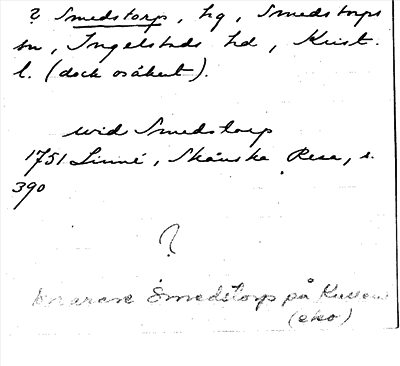 ? Smedstorp, hg, Smedstorps
sn, Ingelstads hd, Krist.
l. (dock osäkert).
wid Smedstorp
1751 Linné, Skånska Resa, s.
390
?
Smedstorp på
(eko)